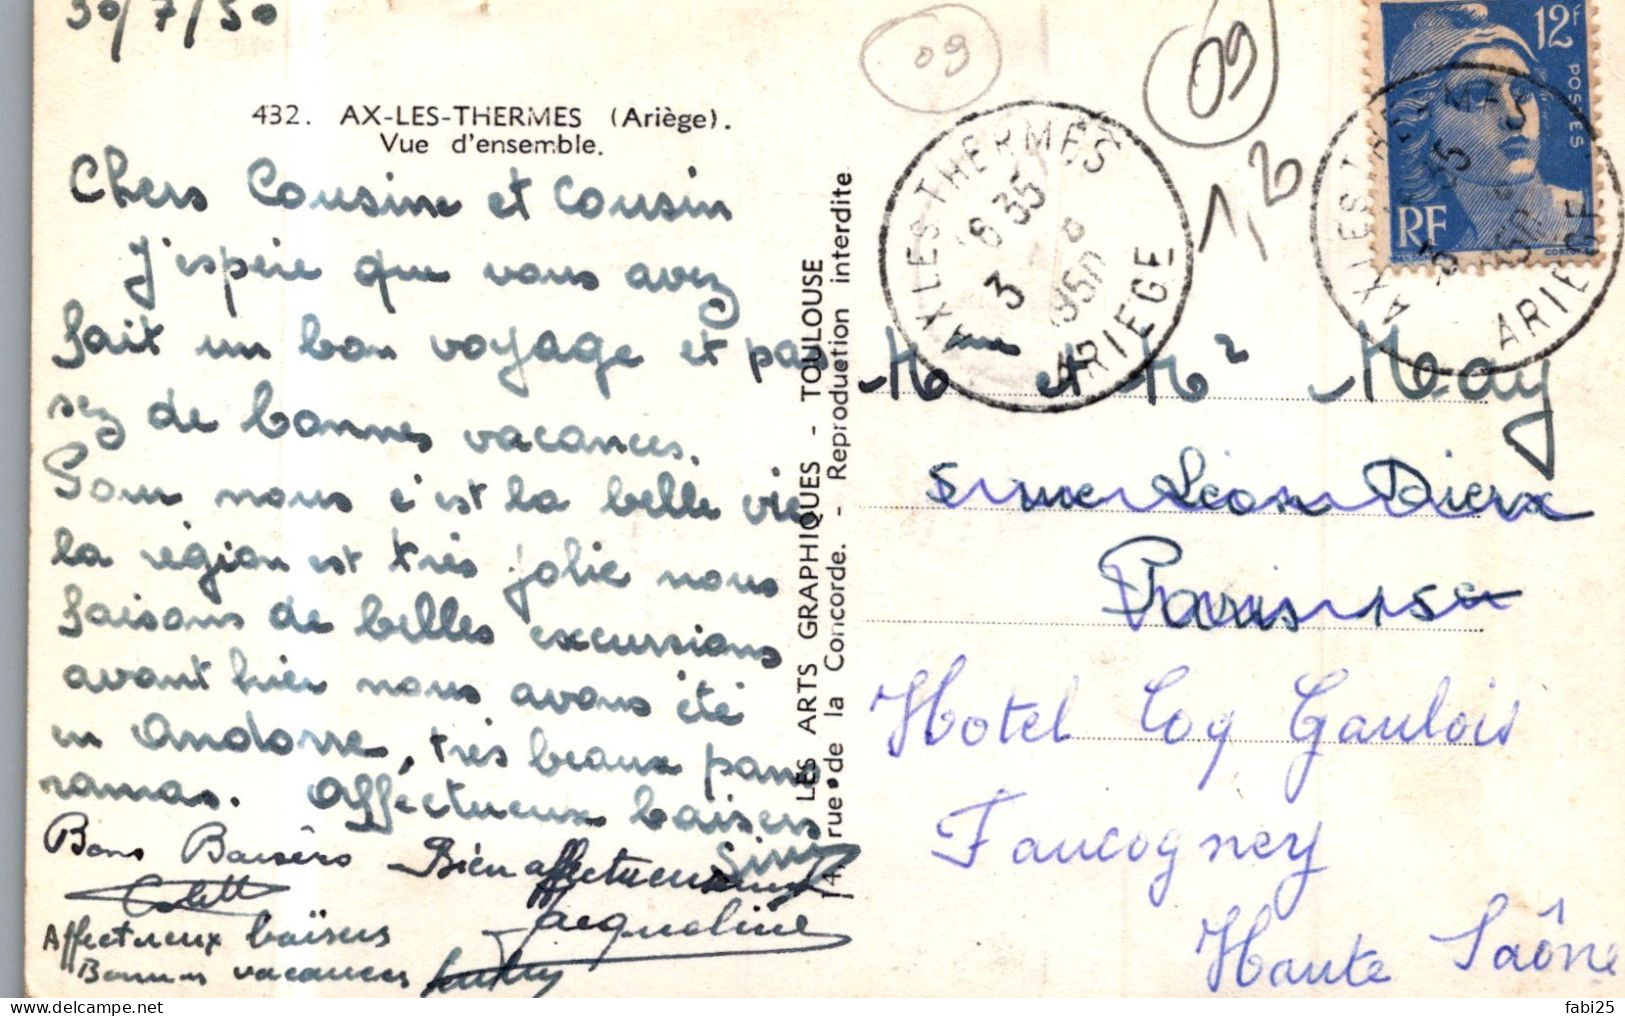 30/7/50
432. AX-LES-THERMES (Ariège).
Vue d'ensemble.
Chers Cousine et Cousin
J'espère que vous avez
fait un bon voyage et pas
sez de bonnes vacances.
Pour nous c'est la belle vie
la région est très jolie nous
faisons de belles excursions
avant hier nous avons été
en Andorre, très beaux pano
ramas. Affectueux baisers
Bons Baisers
Colett
Bien affectueusement
Jacqueline
Affectueux baisers
Bonnes vacances
LES ARTS GRAPHIQUES - TOULOUSE
rue de la Concorde. - Reproduction interdite
09
09
1,2
AX LES THERMES
ARIEGE
12F
POSTES
RF
AX LES THERMES
ARIEGE
Mme et Mr May
5 rue Léon Dierx
Paris 15e
Hotel Coq Gaulois
Faucogney
Haute Saône
fabi25